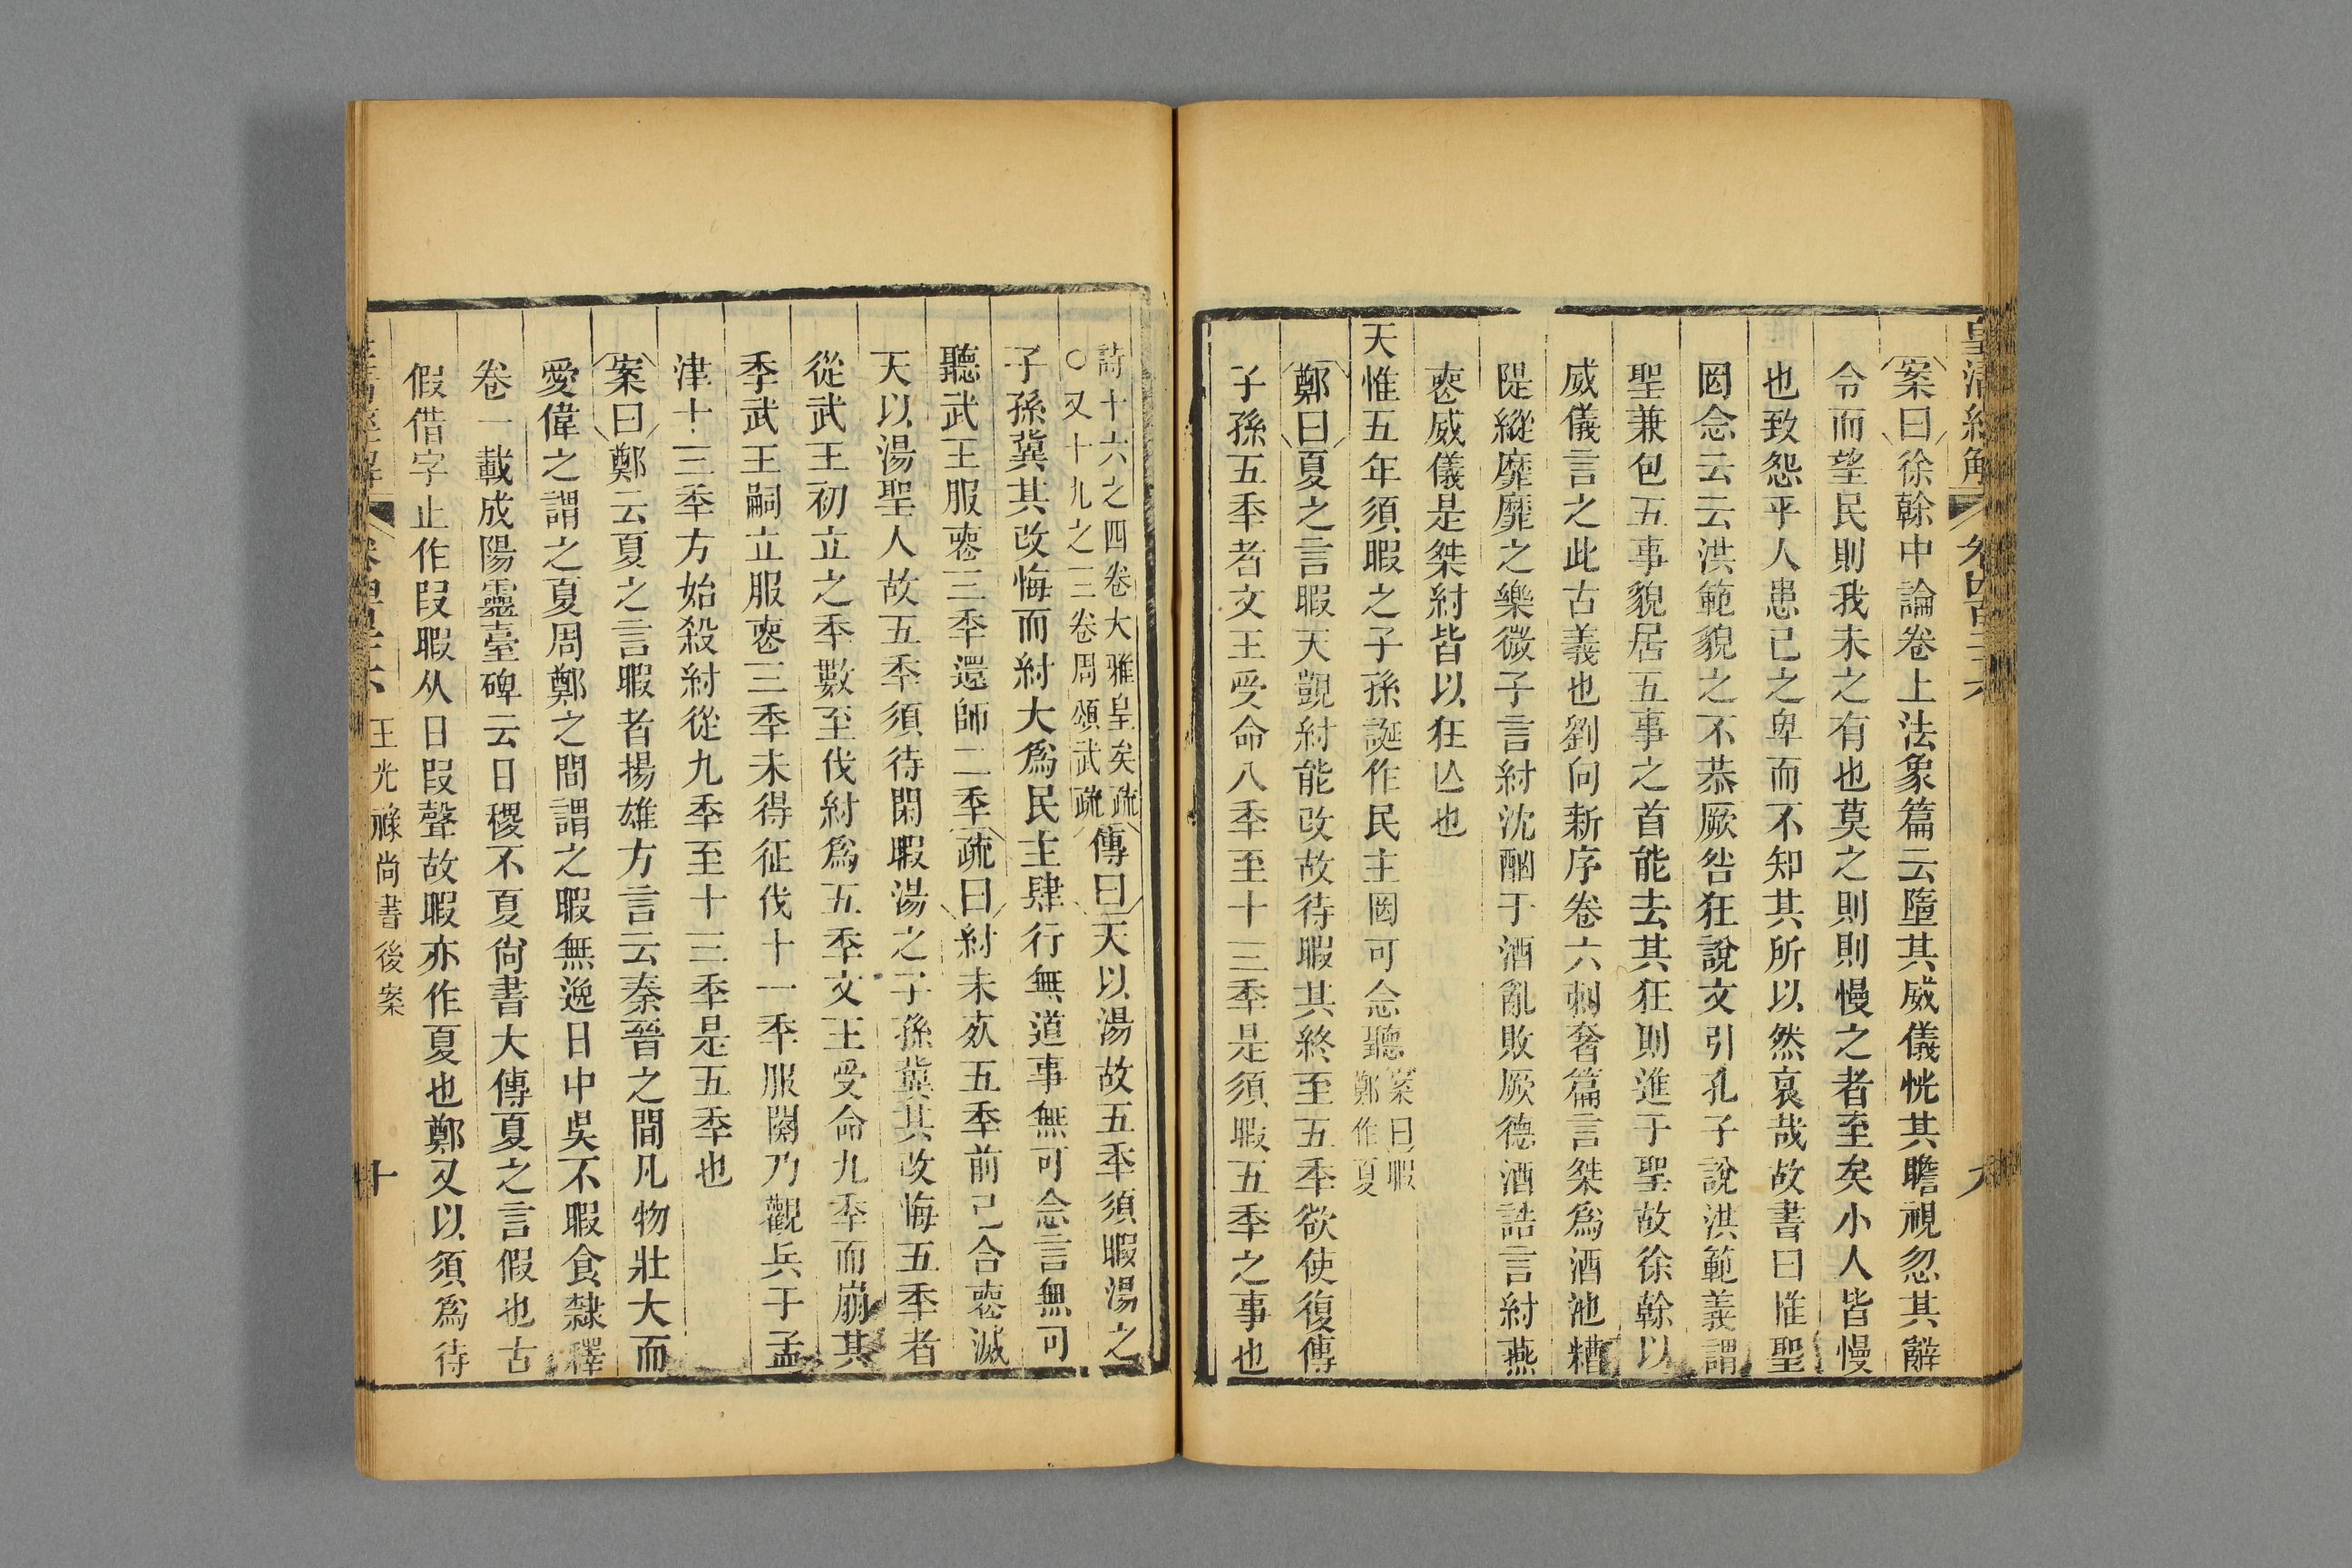 皇清經解
案曰徐榦中論卷上法象篇云墮其威儀恍其瞻視忽其辭
令而望民則我未之有也莫之則則慢之者至矣小人皆慢
也致怨乎人患己之卑而不知其所以然哀哉故書曰惟聖
罔念云云洪範貌之不恭厥咎狂說文引孔子說洪範義謂
聖兼包五事貌居五事之首能去其狂則進于聖故徐榦以
威儀言之此古義也劉向新序卷六刺奢篇言桀爲酒池糟
隄縱靡靡之樂微子言紂沈酗于酒亂敗厥德酒誥言紂燕
喪威儀是桀紂皆以狂亾也
天惟五年須暇之子孫誕作民主罔可念聽案曰暇鄭作夏
鄭曰夏之言暇天覬紂能改故待暇其終至五秊欲使復傳
子孫五秊者文王受命八秊至十三秊是須暇五秊之事也
詩十六之四卷大雅皇矣疏
○又十九之三卷周頌武疏傳曰天以湯故五秊須暇湯之
子孫冀其改悔而紂大爲民主肆行無道事無可念言無可
聽武王服喪三秊還師二秊疏曰紂未死五秊前已合喪滅
天以湯聖人故五秊須待閑暇湯之子孫冀其改悔五秊者
從武王初立之秊數至伐紂爲五秊文王受命九秊而崩其
秊武王嗣立服喪三秊未得征伐十一秊服闋乃觀兵于孟
津十三秊方始殺紂從九秊至十三秊是五秊也
案曰鄭云夏之言暇者揚雄方言云秦晉之間凡物壯大而
愛偉之謂之夏周鄭之間謂之暇無逸日中昃不暇食隸釋
卷一載成陽靈臺碑云日稷不夏尙書大傳夏之言假也古
假借字止作叚暇从日叚聲故暇亦作夏也鄭又以須爲待
王光祿尙書後案
十